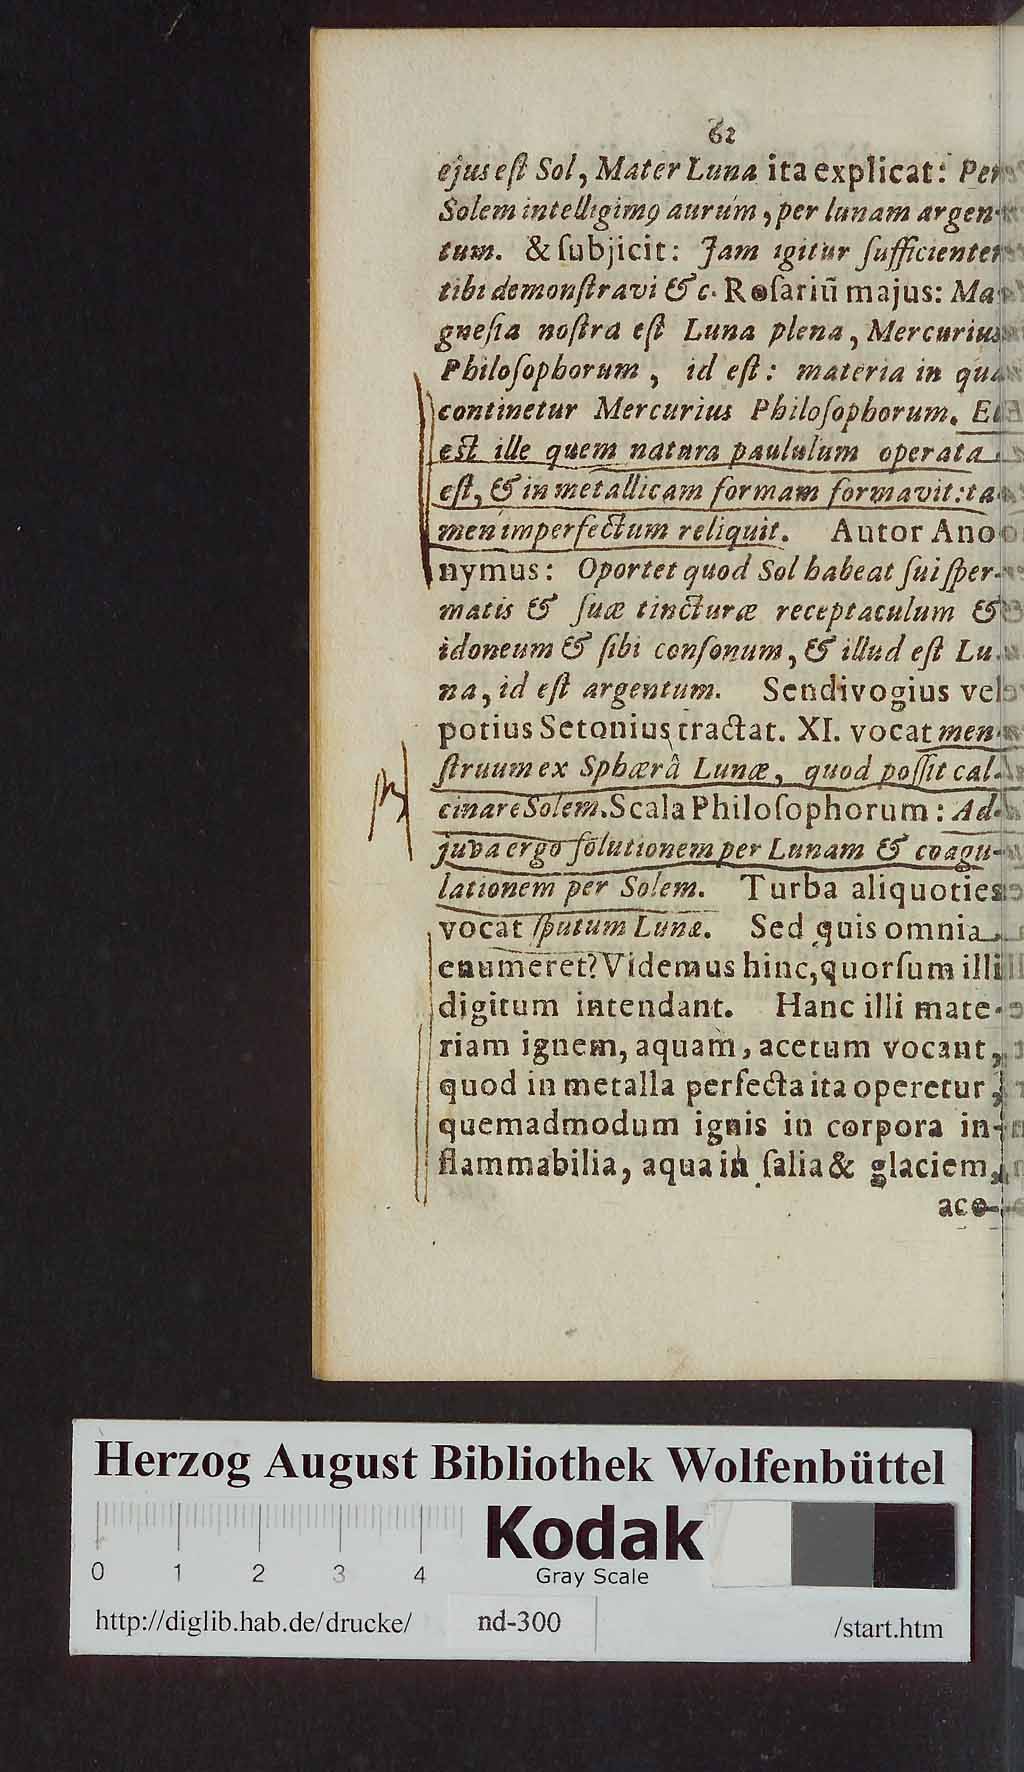 62
ejus eſt Sol, Mater Luna ita explicat: Per
Solem intelligimꝰ aurum, per lunam argen-
tum. & ſubjicit: Jam igitur ſufficienter
tibi demonſtravi & c. Roſariū majus: Ma-
gneſia noſtra eſt Luna plena, Mercurius
Philoſophorum, id eſt: materia in qua
continetur Mercurius Philoſophorum. Et
est ille quem natura paululum operata
eſt, & in metallicam formam formavit: ta-
men imperfectum reliquit. Autor Ano-
nymus: Oportet quod Sol habeat ſui ſper-
matis & ſuæ tincturæ receptaculum &
idoneum & ſibi conſonum, & illud eſt Lu-
na, id eſt argentum. Sendivogius vel
potius Setonius tractat. XI. vocat men-
ſtruum ex Sphærâ Lunæ, quod poſſit cal-
cinare Solem. Scala Philoſophorum: Ad-
juva ergo ſolutionem per Lunam & coagu-
lationem per Solem. Turba aliquoties
vocat ſputum Lunæ. Sed quis omnia
enumeret? Videmus hinc, quorſum illi
digitum intendant. Hanc illi mate-
riam ignem, aquam, acetum vocant,
quod in metalla perfecta ita operetur,
quemadmodum ignis in corpora in-
flammabilia, aqua in ſalia & glaciem,
ace-
Herzog August Bibliothek Wolfenbüttel
Kodak
0 1 2 3 4
Gray Scale
http://diglib.hab.de/drucke/ nd-300 /start.htm